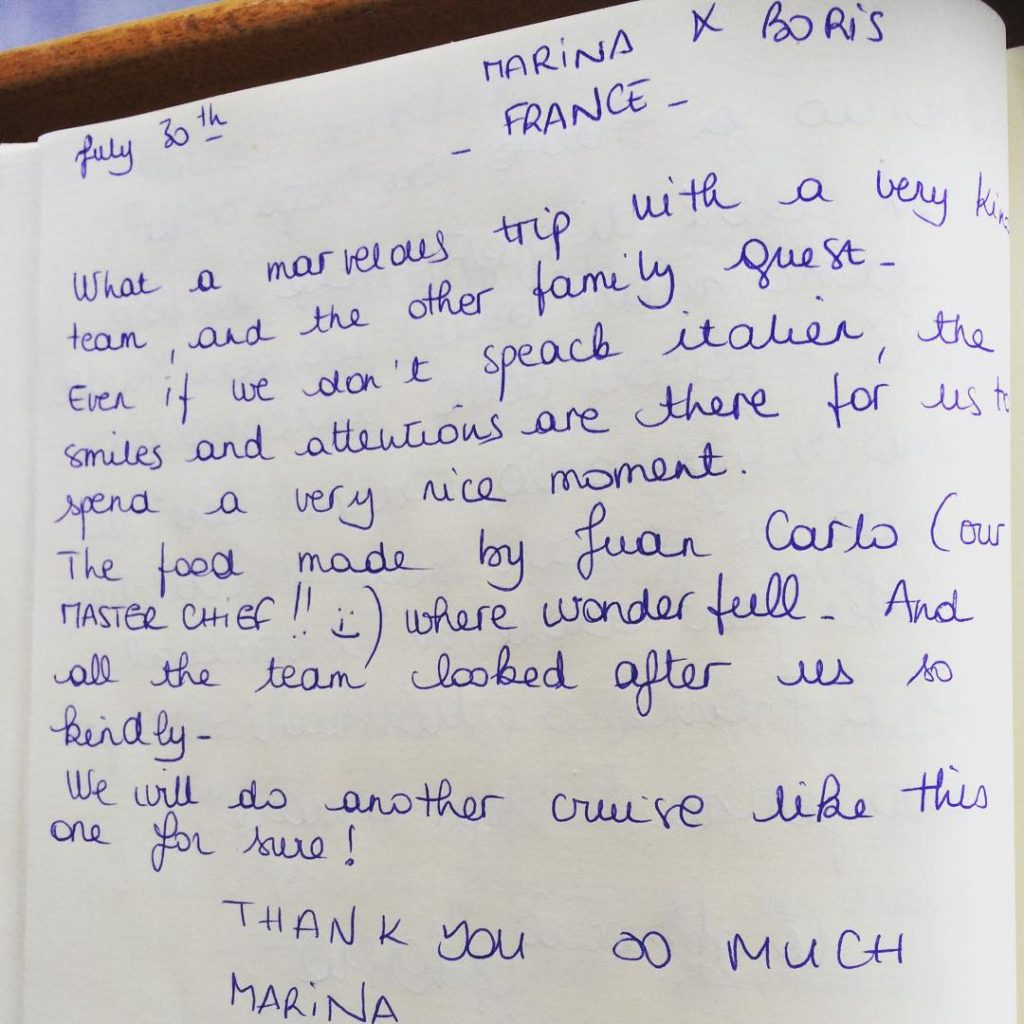 MARINA & BORIS
July 30th
- FRANCE -
What a marvelous trip with a very kind
team, and the other family guest -
Even if we don't speack italien, the
smiles and attentions are there for us to
spend a very nice moment.
The food made by Juan Carlo (our
MASTER CHIEF !! :)) where wonderfull - And
all the team looked after us so
kindly -
We will do another cruise like this
one for sure !
THANK YOU SO MUCH
MARINA